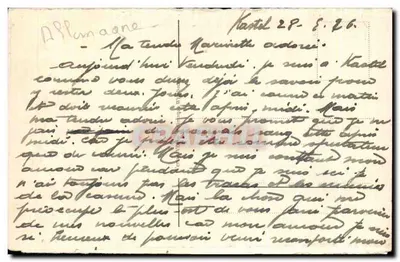 Allemagne
Kastel 28-5-26.
Ma tendre Marinette adorée.
Aujourd'hui Vendredi, je suis à Kastel
comme vous devez déjà le savoir pour
y rester deux jours. J'ai couru ce matin
et dois recourir cet après-midi. Mais
ma tendre adorée, je vous promets que je ne
pas cet après
midi. car je
que de courir. Mais je suis content mon
amour car pendant que je suis ici je
n'ai toujours pas les tracas et les
de la caserne. Mais la chose qui me
préoccupe le plus est de vous faire parvenir
de mes nouvelles car mon amour je suis
si heureux de pouvoir venir mon